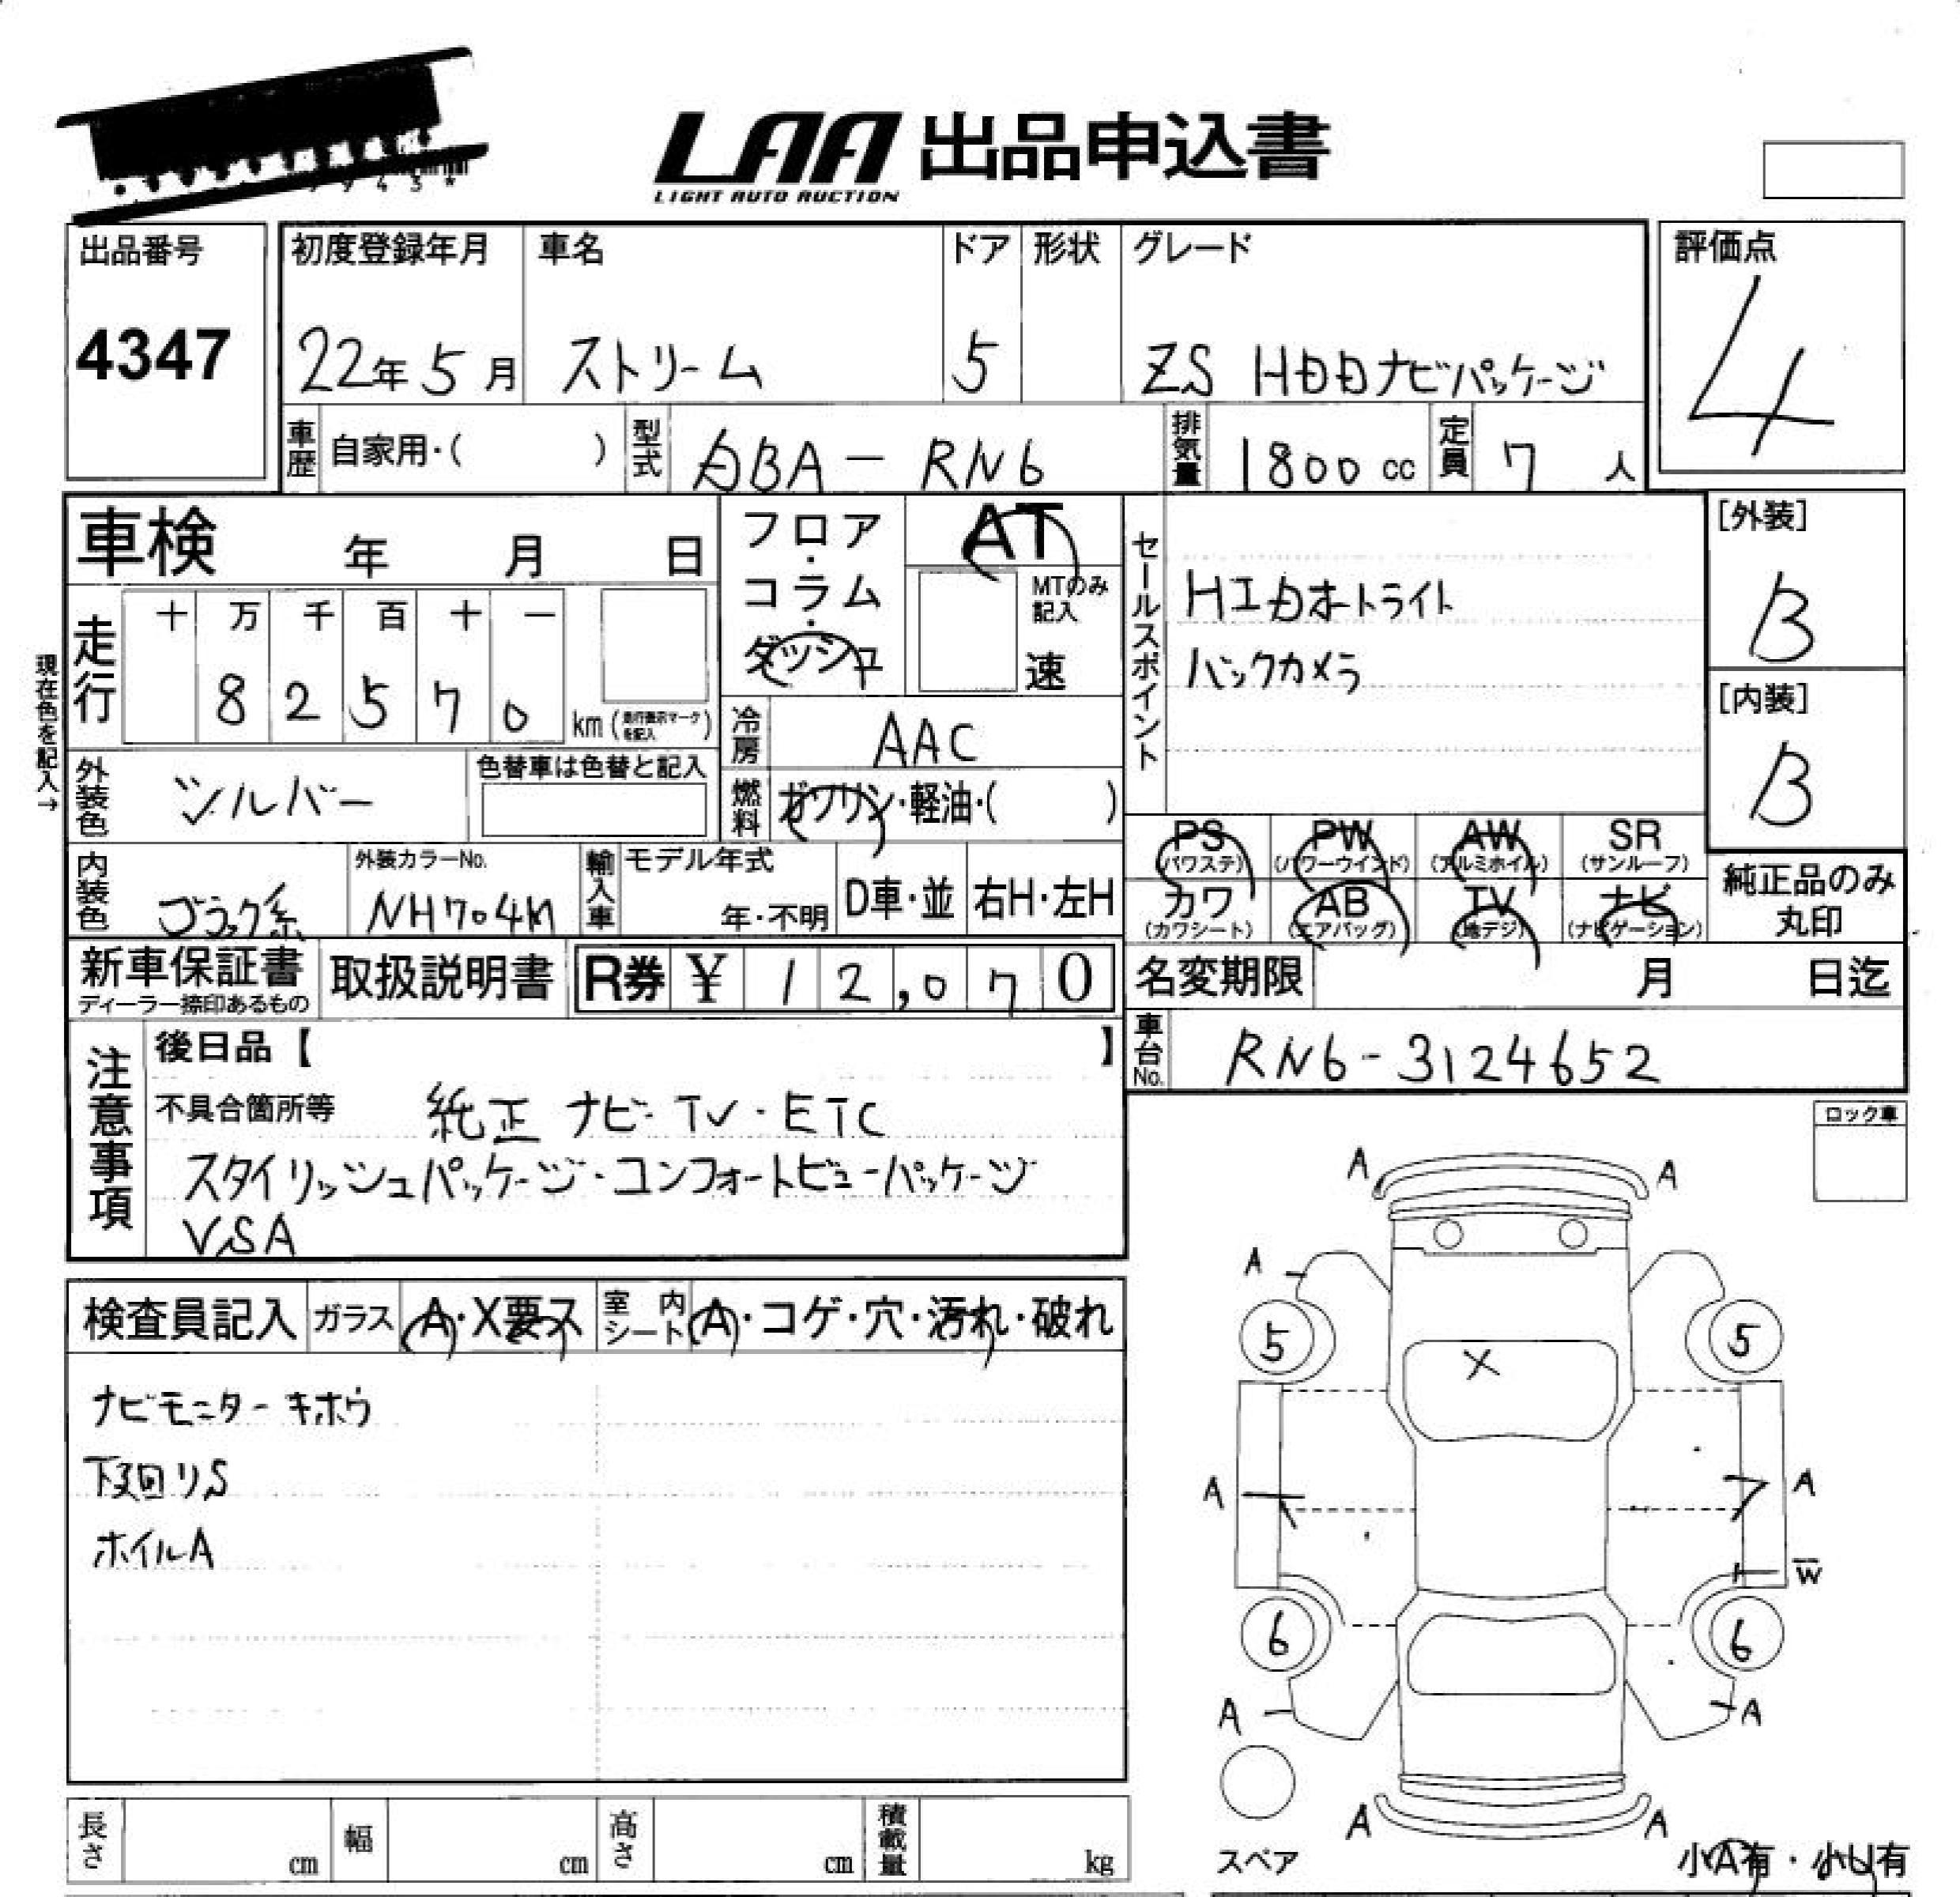 LAA 出品申込書
LIGHT AUTO AUCTION
出品番号
4347
初度登録年月 車名 ドア 形状 グレード
22年5月 ストリーム 5 ZS HDDナビパッケージ
評価点
4
車歴 自家用・( ) 型式 DBA-RN6 排気量 1800cc 定員 7人
車検 年 月 日
フロア・コラム・ダッシュ
AT
MTのみ記入
速
セールスポイント
HIDオートライト
バックカメラ
[外装]
B
[内装]
B
現在色を記入→
走行 十 万 千 百 十 一
8 2 5 7 0 km(走行表示マークを記入)
冷房 AAC
外装色 シルバー 色替車は色替と記入
燃料 ガソリン・軽油・( )
内装色 ブラック系 外装カラーNo. NH704M 輸入車 モデル年式 年・不明 D車・並 右H・左H
PS(パワステ) PW(パワーウインド) AW(アルミホイル) SR(サンルーフ)
カワ(カワシート) AB(エアバッグ) TV(地デジ) ナビ(ナビゲーション)
純正品のみ丸印
新車保証書 ディーラー捺印あるもの 取扱説明書 R券 ¥ 12,070
名変期限 月 日迄
車台No. RN6-3124652
注意事項
後日品【 】
不具合箇所等 純正 ナビ・TV・ETC
スタイリッシュパッケージ・コンフォートビューパッケージ
VSA
ロック車
検査員記入 ガラス A・X要ス 室内シート A・コゲ・穴・汚れ・破れ
ナビモニターキホウ
下回りS
ホイルA
A A
A
5 5
X
A A
W
6 6
A A
A A
スペア
小A有・小U有
長さ cm 幅 cm 高さ cm 積載量 kg